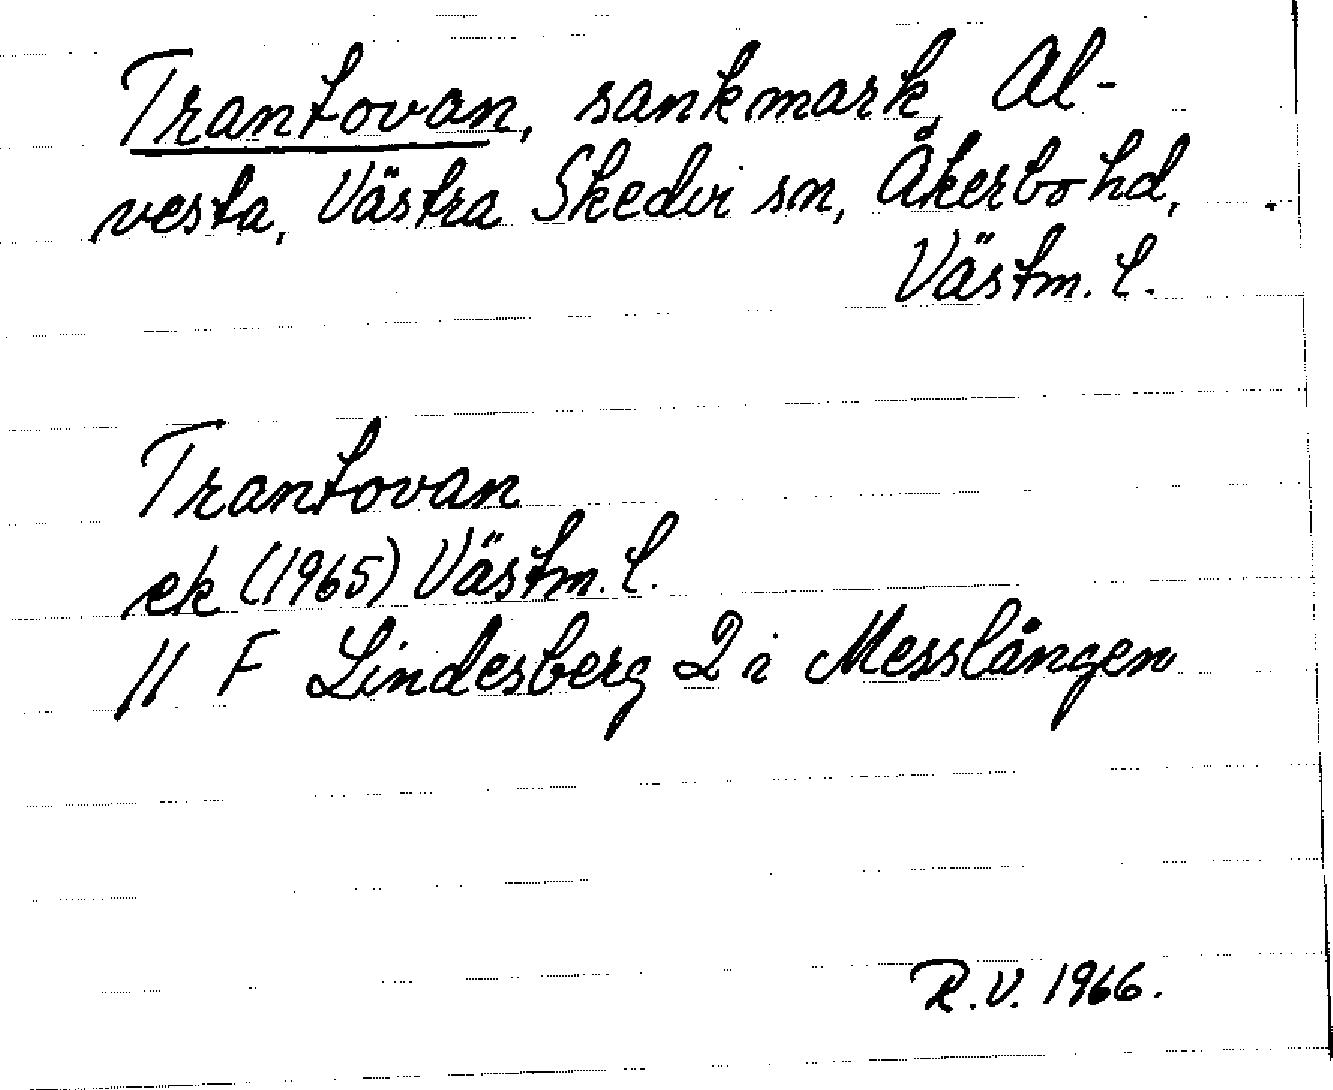 Trantovan, sankmark, Al-
vesta, Västra Skedvi sn, Åkerbo hd,
Västm. l.
Trantovan
ek (1965) Västm. l.
// F Lindesberg 2 i Messlången
R.V. 1966.